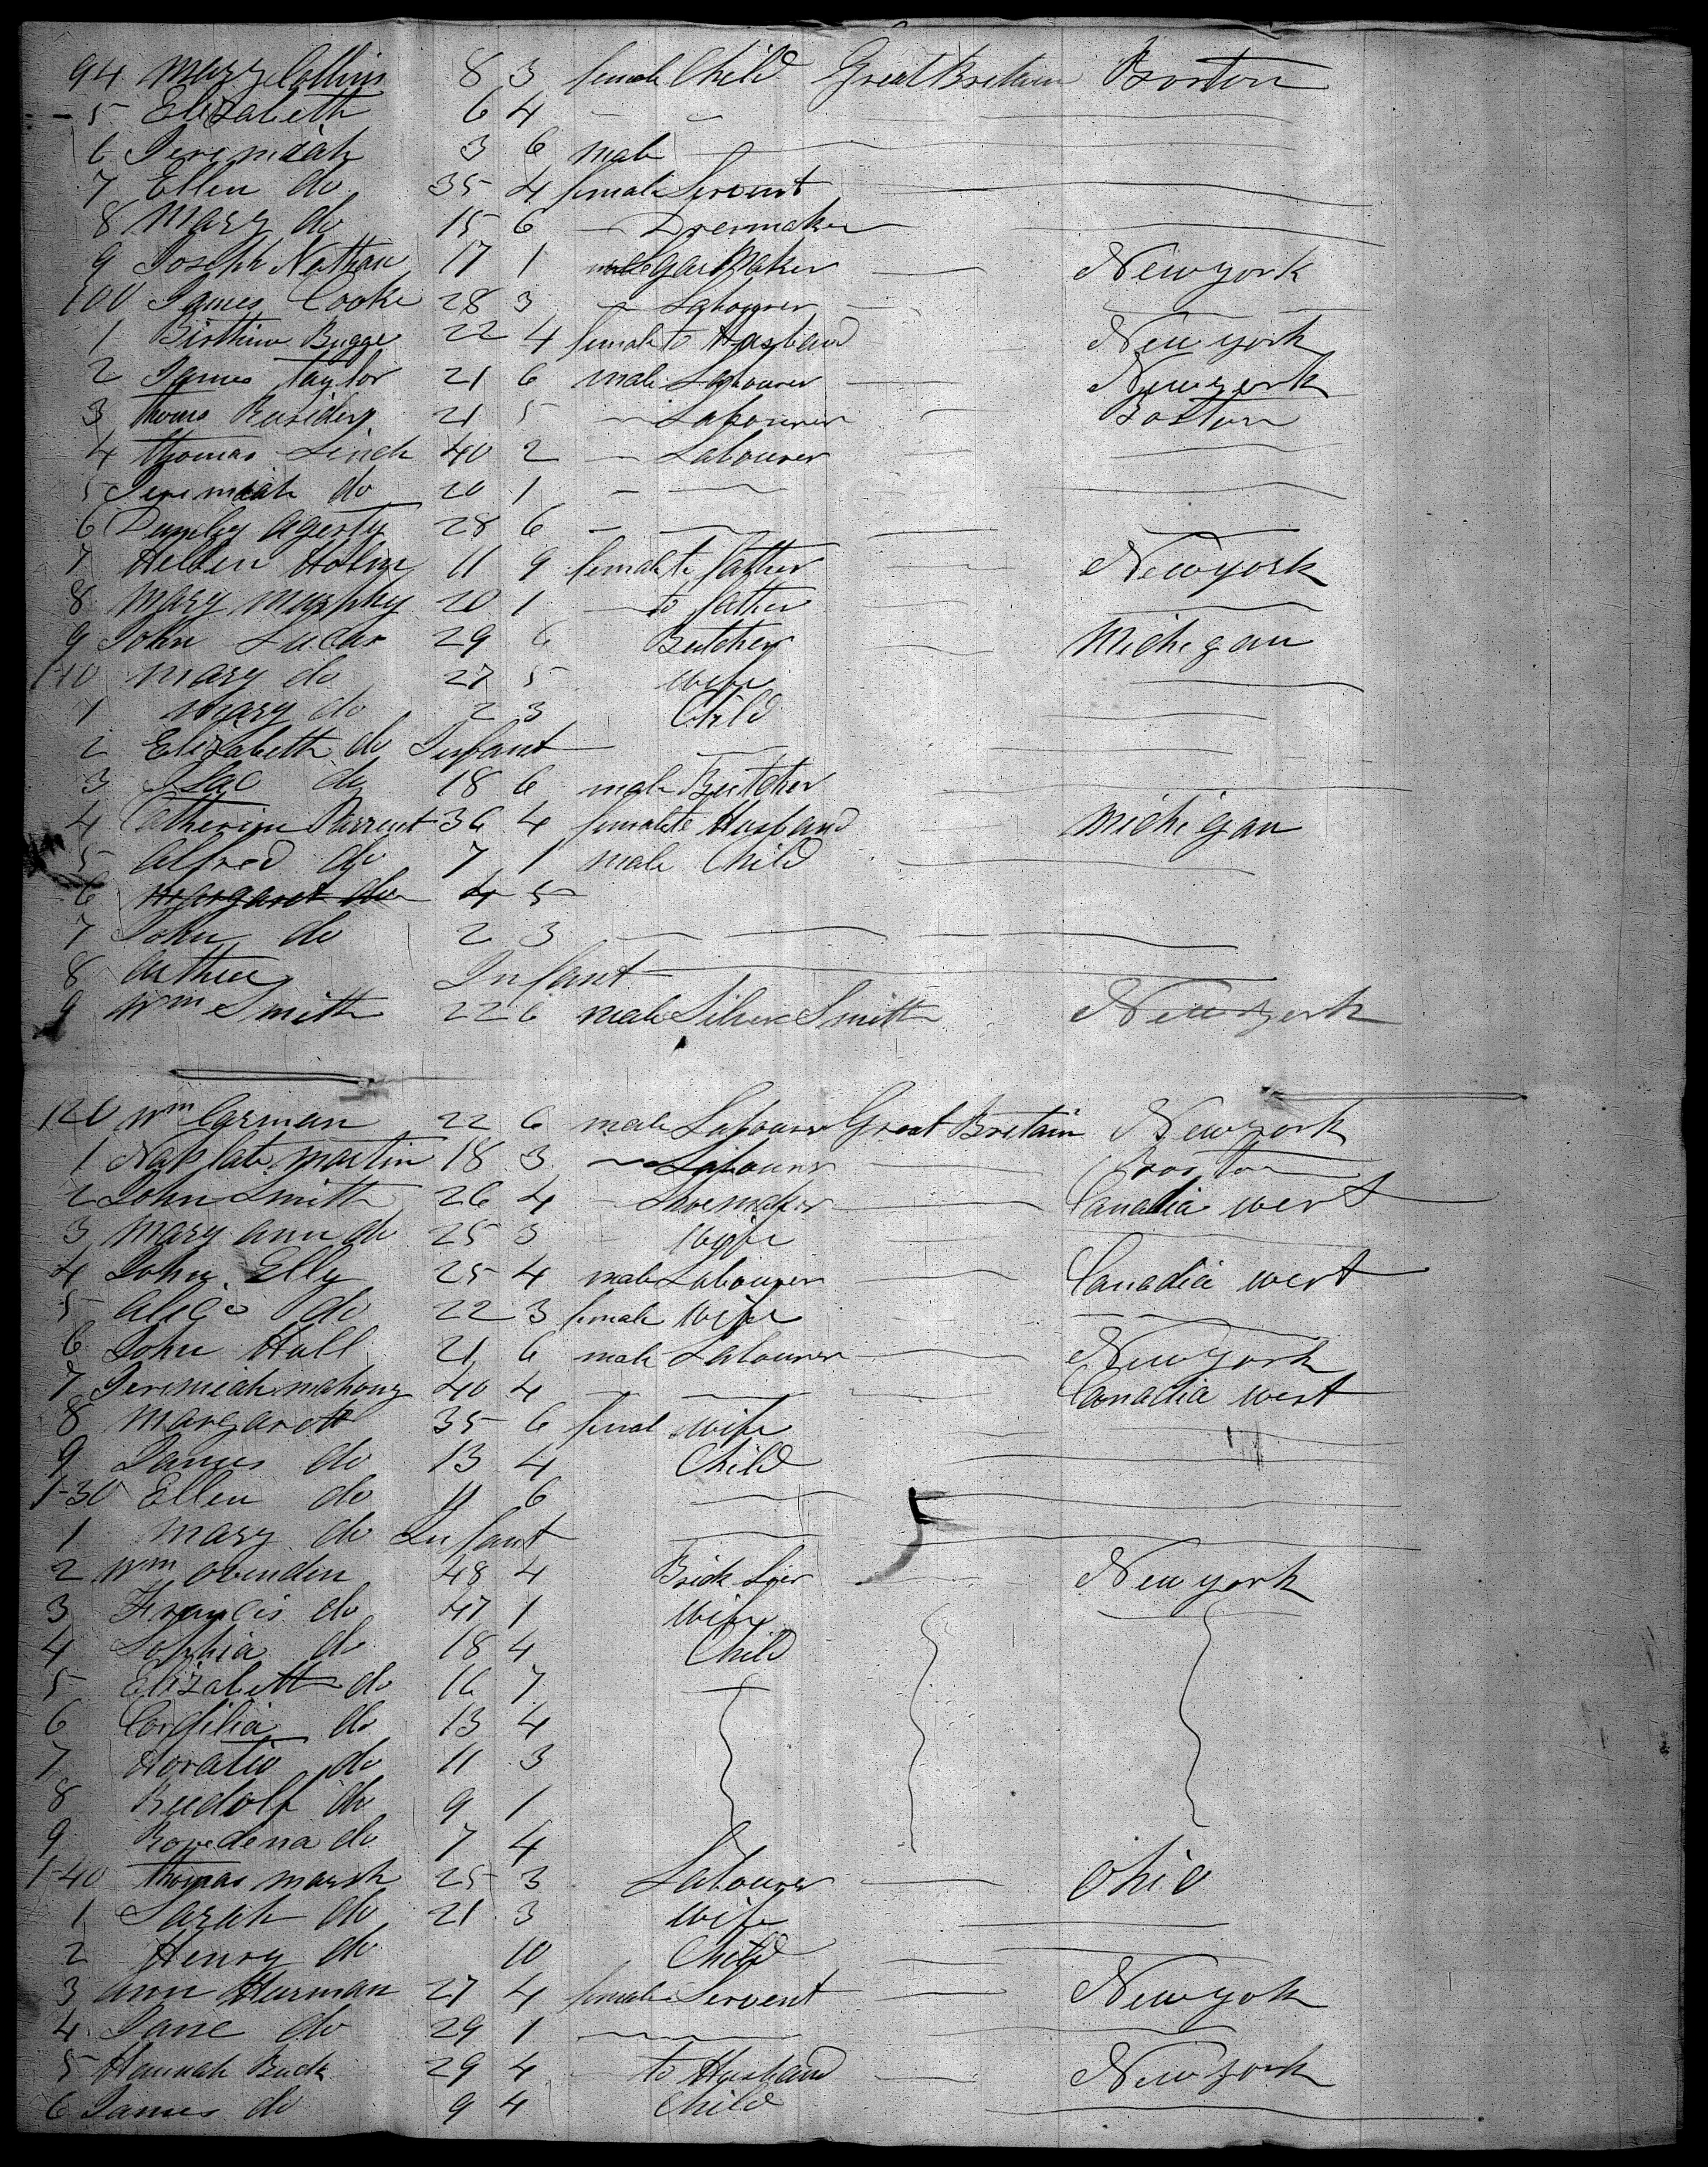 94 Mary Collins 8 3 female Child Great Britain Boston
5 Elizabeth 6 4
6 Jeremiah 3 6 male
7 Ellen do 35 4 female Servent
8 Mary do 15 6 Dressmaker
9 Joseph Nathan 17 1 male Maker Newyork
100 James Cooke 28 3 Labourer
1 Bugge 22 4 female to Husband New york
2 James Taylor 21 6 male Labourer Newyork
3 Thomas 21 5 Labourer Boston
4 Thomas Linch 40 2 Labourer
5 Jeremiah do 20 1
6 agerty 28 6
7 Hellen Holm 11 9 female to father Newyork
8 Mary Murphy 20 1 to father
9 John Lucas 29 6 Butcher Michigan
110 Mary do 27 5 Wife
1 Mary do 2 3 Child
2 Elizabeth do Infant
3 Isac do 18 6 male Butcher
4 Catherine Parrent 36 4 female to Husband Michigan
5 Alfred do 7 1 male Child
6 Margaret do 4 5
7 John do 2 3
8 Arthur Infant
9 Wm Smith 22 6 male Silver Smith Newyork
120 Wm Carman 22 6 male Labourer Great Britain Newyork
1 Martin 18 3 Labourer Boston
2 John Smith 26 4 Shoemaker Canadia west
3 Mary ann do 25 3 Wife
4 John Elly 25 4 male Labourer Canadia west
5 Alice do 22 3 female Wife
6 John Hall 21 6 male Labourer Newyork
7 Jeremieah mahony 40 4 Canadia west
8 Margarett 35 6 femal wife
9 James do 13 4 Child
1-30 Ellen do 11 6
1 Mary do Infant
2 Wm Ovenden 48 4 Brick Lier New york
3 Francis do 47 1 Wife
4 Sophia do 18 4 Child
5 Elizabeth do 16 7
6 Cordilia do 13 4
7 Horatio do 11 3
8 Rudolf do 9 1
9 Rowedena do 7 4
1-40 Thomas Marsh 25 3 Labourer Ohio
1 Sarah do 21 3 Wife
2 Henry do 10 Child
3 Ann Harman 27 4 female Servent Newyok
4 Jane do 29 1
5 Hannah Buck 29 4 to Husband Newyork
6 James do 9 4 Child